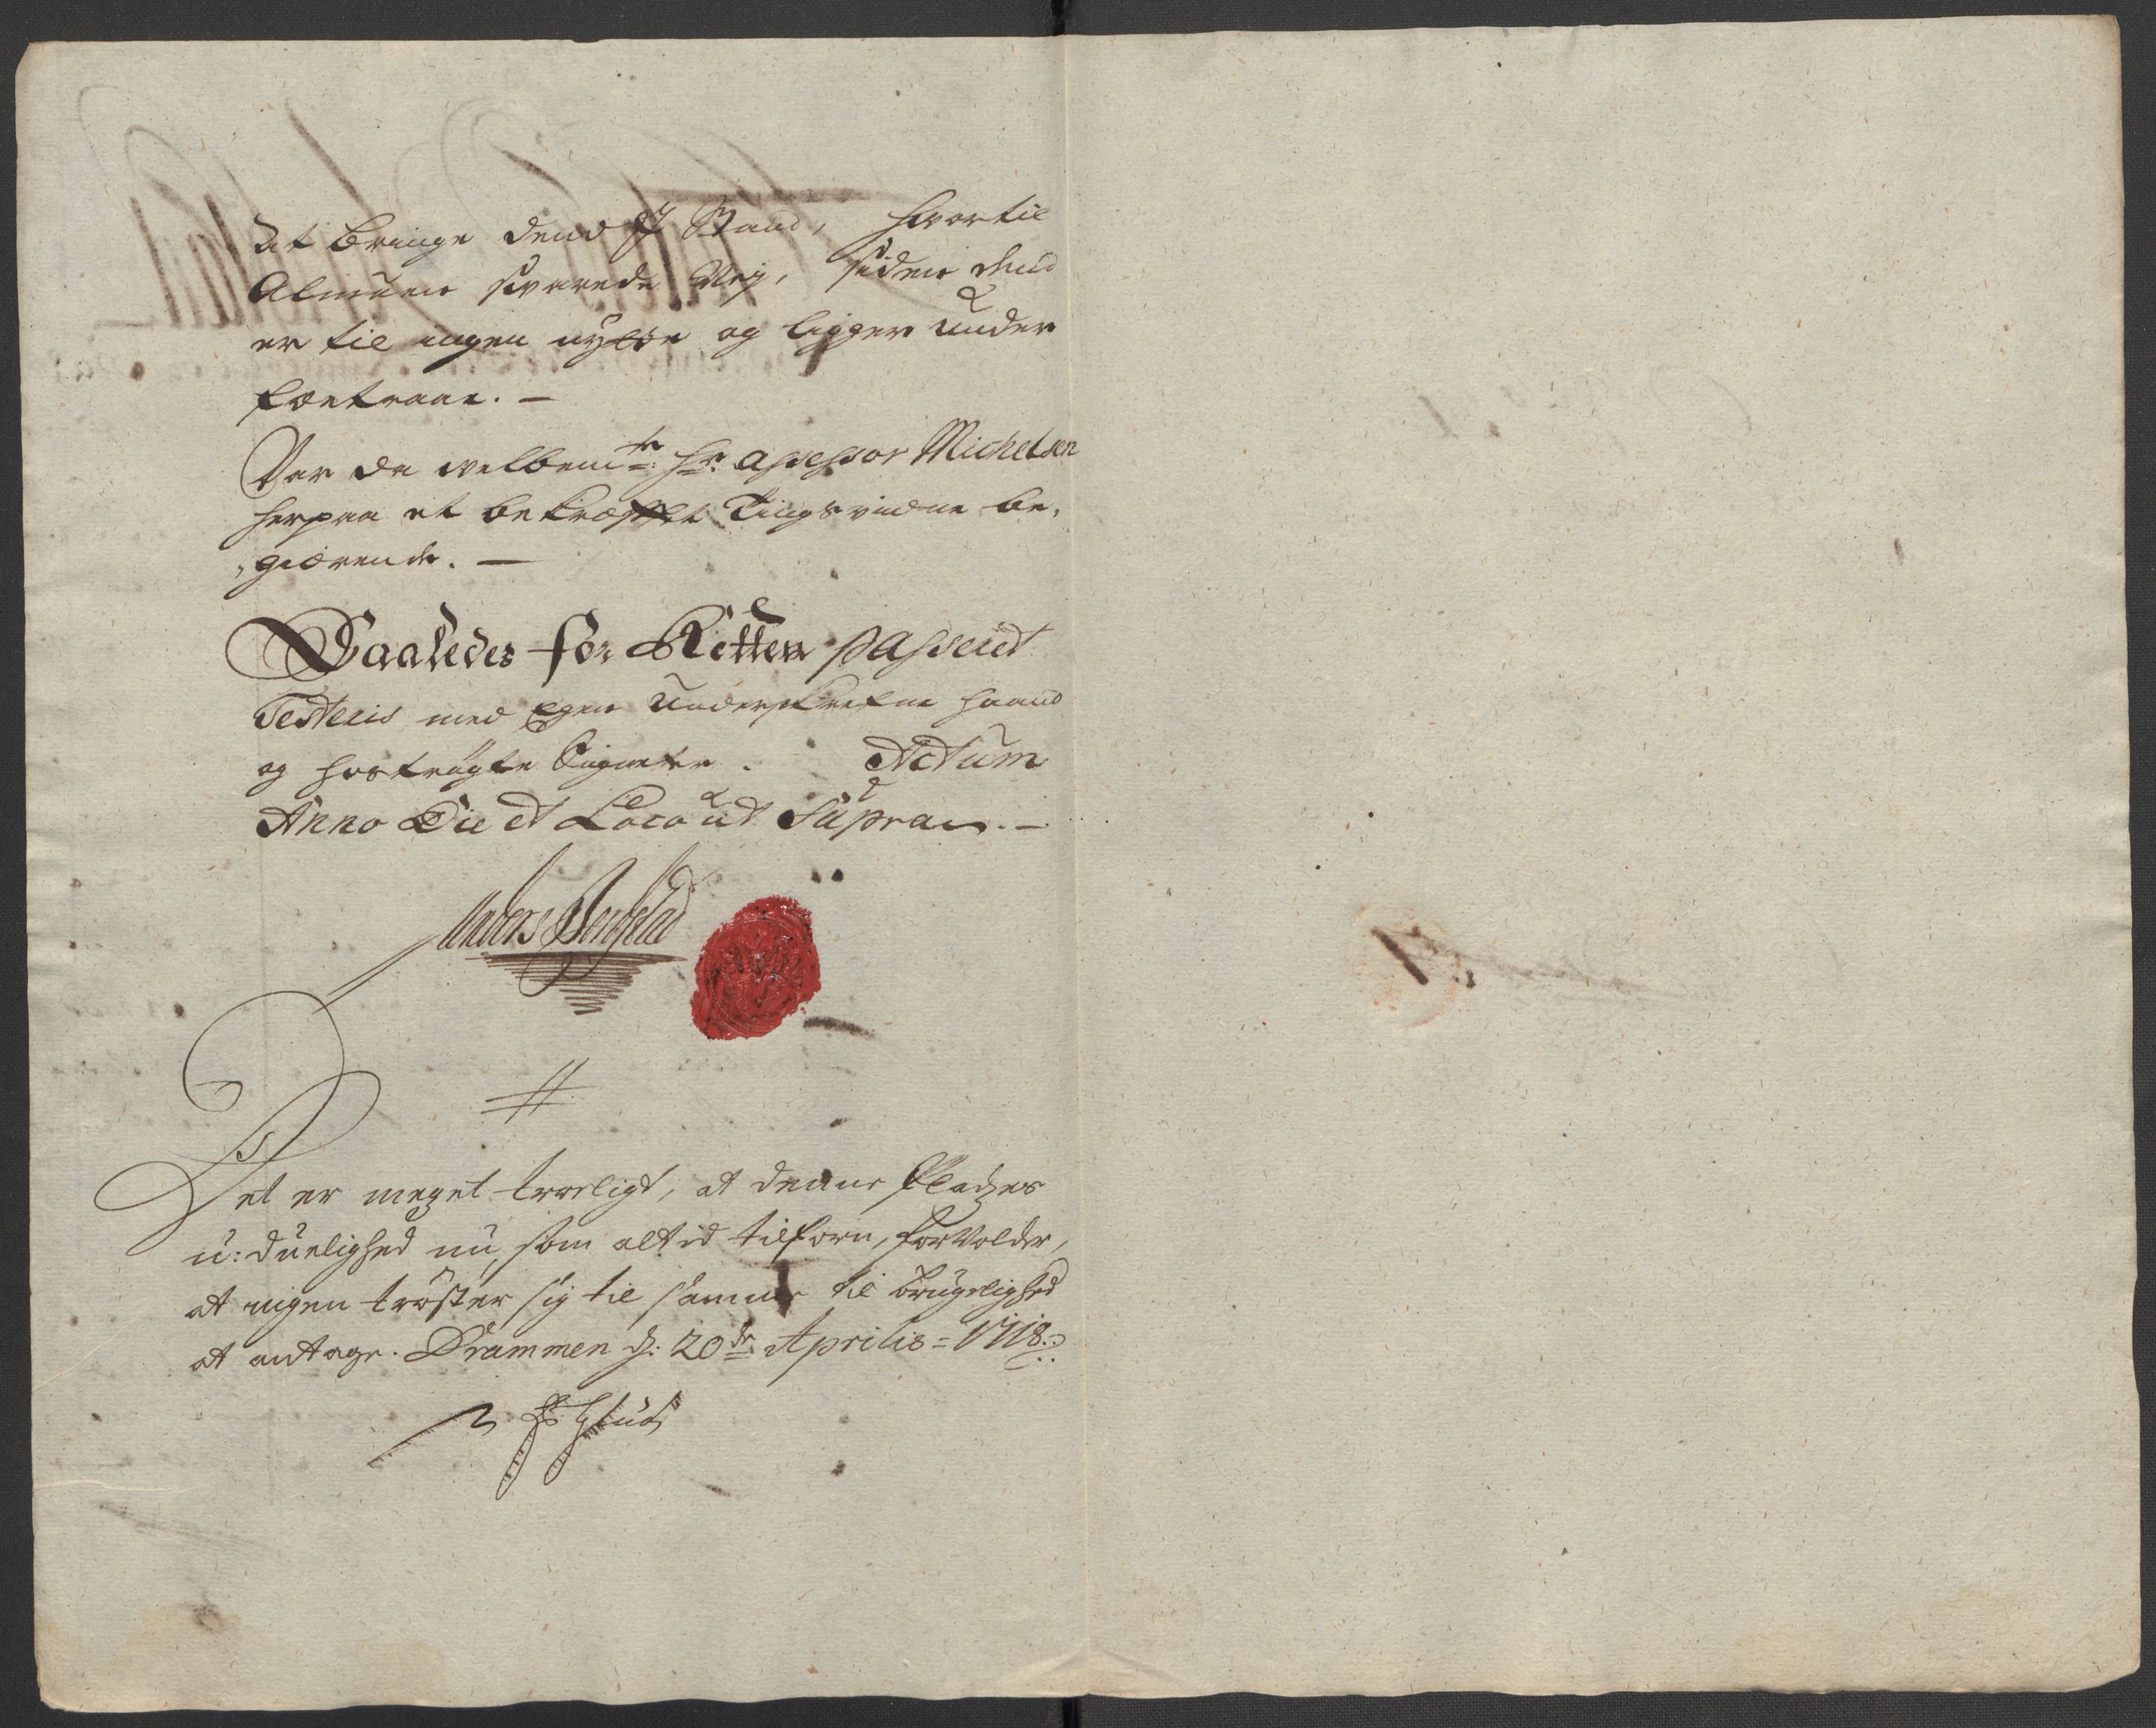 at bringe dend J Stand, hvortil
Almuen svarede Nej, siden dend
er til ingen nytte og ligger under
Van da welbemte: Hr: Assessor Michelsen
herpaa et bekræfftet Tingsvidne be,
,giærende. —
Saaledes for Retten passeret
Testeris med Egen underskrefne haand
og hoströgte Signete. Actum
Anno Die et Loco ut Supra. —
Anders
Det er meget troeligt, at denne Pladzes
u:duelighed nu, som altid tilforn, forvolder,
at ingen tröster sig til samme til brugelighed
at antage. Drammen d: 20de Aprilis = 1718.